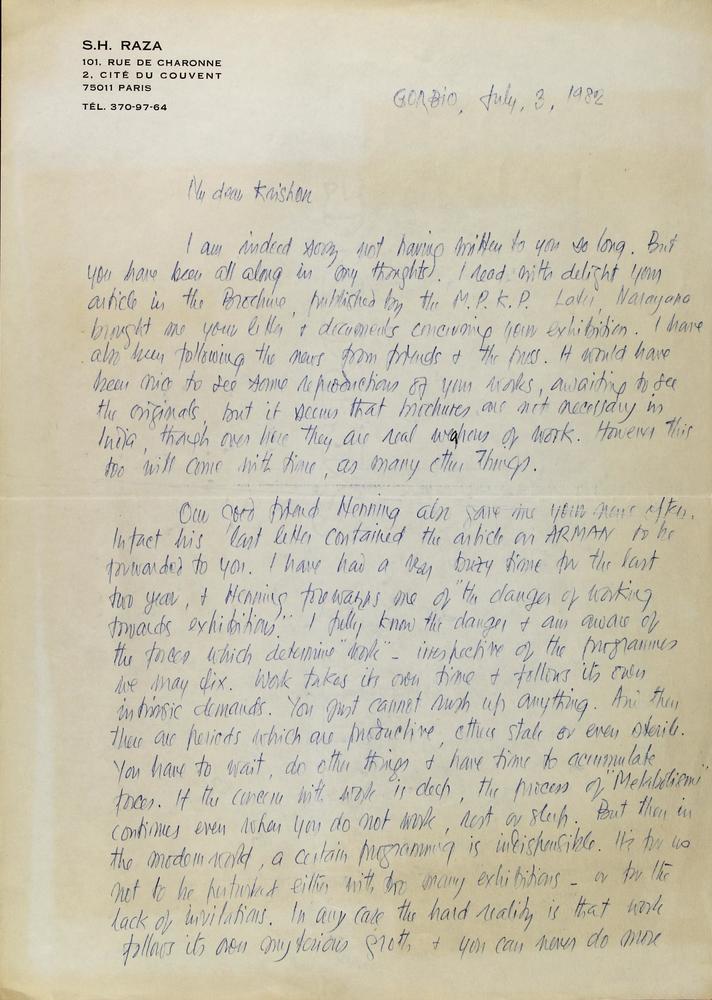 S.H. RAZA
101, RUE DE CHARONNE
2, CITÉ DU COUVENT
75011 PARIS
TÉL. 370-97-64
GORBIO, July, 3, 1982
My dear Krishen
I am indeed sorry not having written to you so long. But
you have been all along in my thoughts. I read with delight your
article in the Brochure, published by the M.P.K.P. Later, Narayana
brought me your letter & documents concerning your exhibition. I have
also been following the news from friends & the press. It would have
been nice to see some reproductions of your works, awaiting to see
the originals, but it seems that brochures are not necessary in
India, though over here they are real weapons of work. However this
too will come with time, as many other things.
Our good friend Henning also gave me your news often.
Infact his last letter contained the article on ARMAN to be
forwarded to you. I have had a very busy time for the last
two year, & Henning forewarns me of "the danger of working
towards exhibitions." I fully know the danger & am aware of
the forces which determine "work" - irrespective of the programmes
we may fix. Work takes its own time & follows its own
intrinsic demands. You just cannot rush up anything. And then
there are periods which are productive, others stale or even sterile.
You have to wait, do other things & have time to accumulate
forces. If the concern with work is deep, the process of "Metabolism"
continues even when you do not work, rest or sleep. But then in
the modern world, a certain programming is indispensible. It's for us
not to be perturbed either with too many exhibitions - or for the
lack of invitations. In any case the hard reality is that work
follows its own mysterious groth & you can never do more